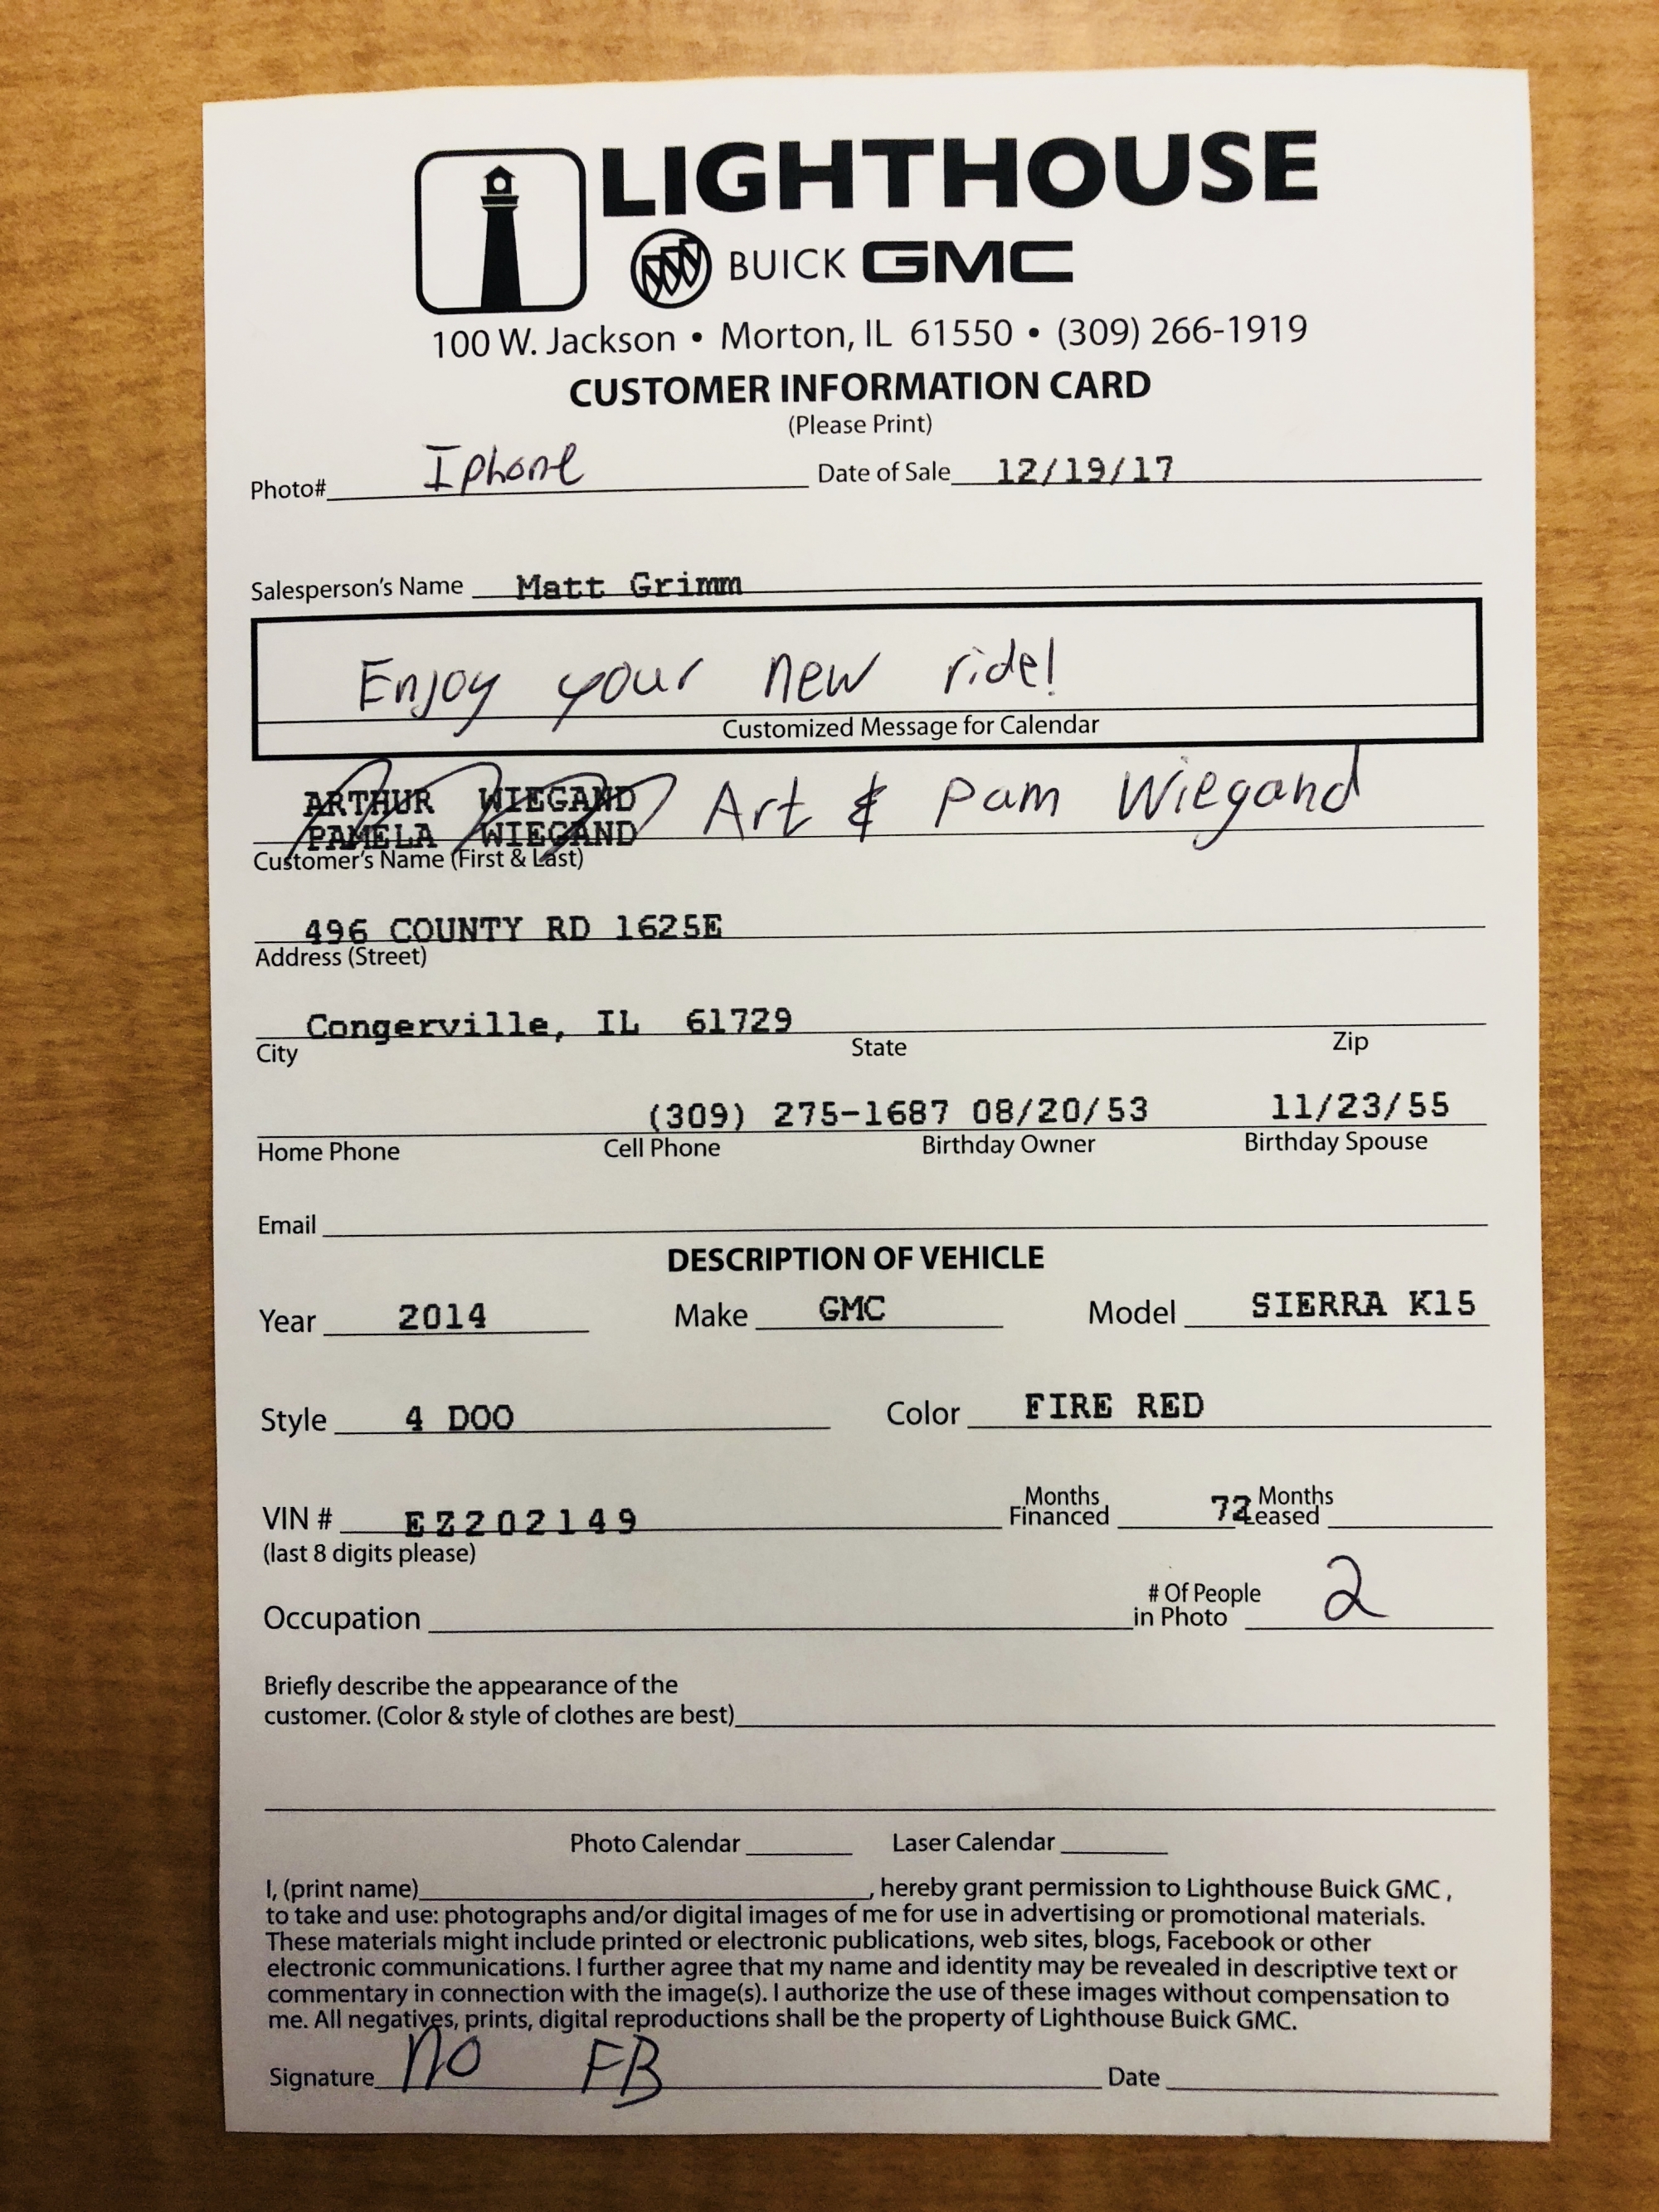 LIGHTHOUSE
BUICK GMC
100 W. Jackson • Morton, IL 61550 • (309) 266-1919
CUSTOMER INFORMATION CARD
(Please Print)
Photo# Iphone Date of Sale 12/19/17
Salesperson's Name Matt Grimm
Enjoy your new ride!
Customized Message for Calendar
ARTHUR WIEGAND Art & Pam Wiegand
PAMELA WIEGAND
Customer's Name (First & Last)
496 COUNTY RD 1625E
Address (Street)
Congerville, IL 61729
City State Zip
(309) 275-1687 08/20/53 11/23/55
Home Phone Cell Phone Birthday Owner Birthday Spouse
Email
DESCRIPTION OF VEHICLE
Year 2014 Make GMC Model SIERRA K15
Style 4 DOO Color FIRE RED
VIN # EZ202149 Months Financed 72 Months Leased
(last 8 digits please)
Occupation # Of People in Photo 2
Briefly describe the appearance of the
customer. (Color & style of clothes are best)
Photo Calendar Laser Calendar
I, (print name) , hereby grant permission to Lighthouse Buick GMC ,
to take and use: photographs and/or digital images of me for use in advertising or promotional materials.
These materials might include printed or electronic publications, web sites, blogs, Facebook or other
electronic communications. I further agree that my name and identity may be revealed in descriptive text or
commentary in connection with the image(s). I authorize the use of these images without compensation to
me. All negatives, prints, digital reproductions shall be the property of Lighthouse Buick GMC.
Signature no FB Date